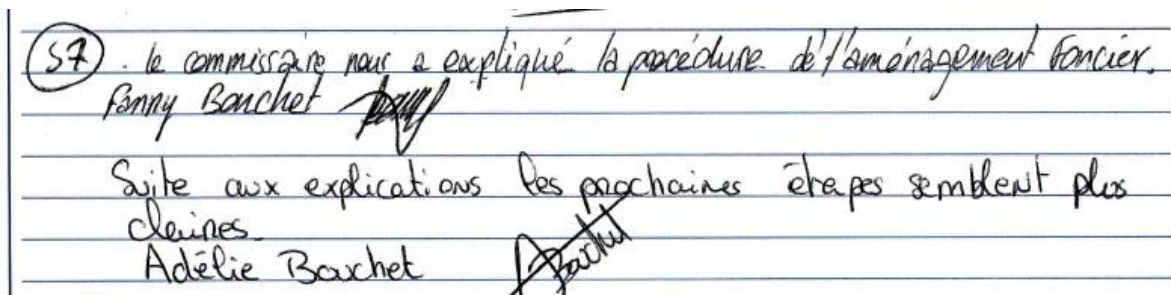 57 . le commissaire nous a expliqué la procédure de l'aménagement foncier.
Fanny Bouchet
Suite aux explications les prochaines étapes semblent plus
claires.
Adélie Bouchet